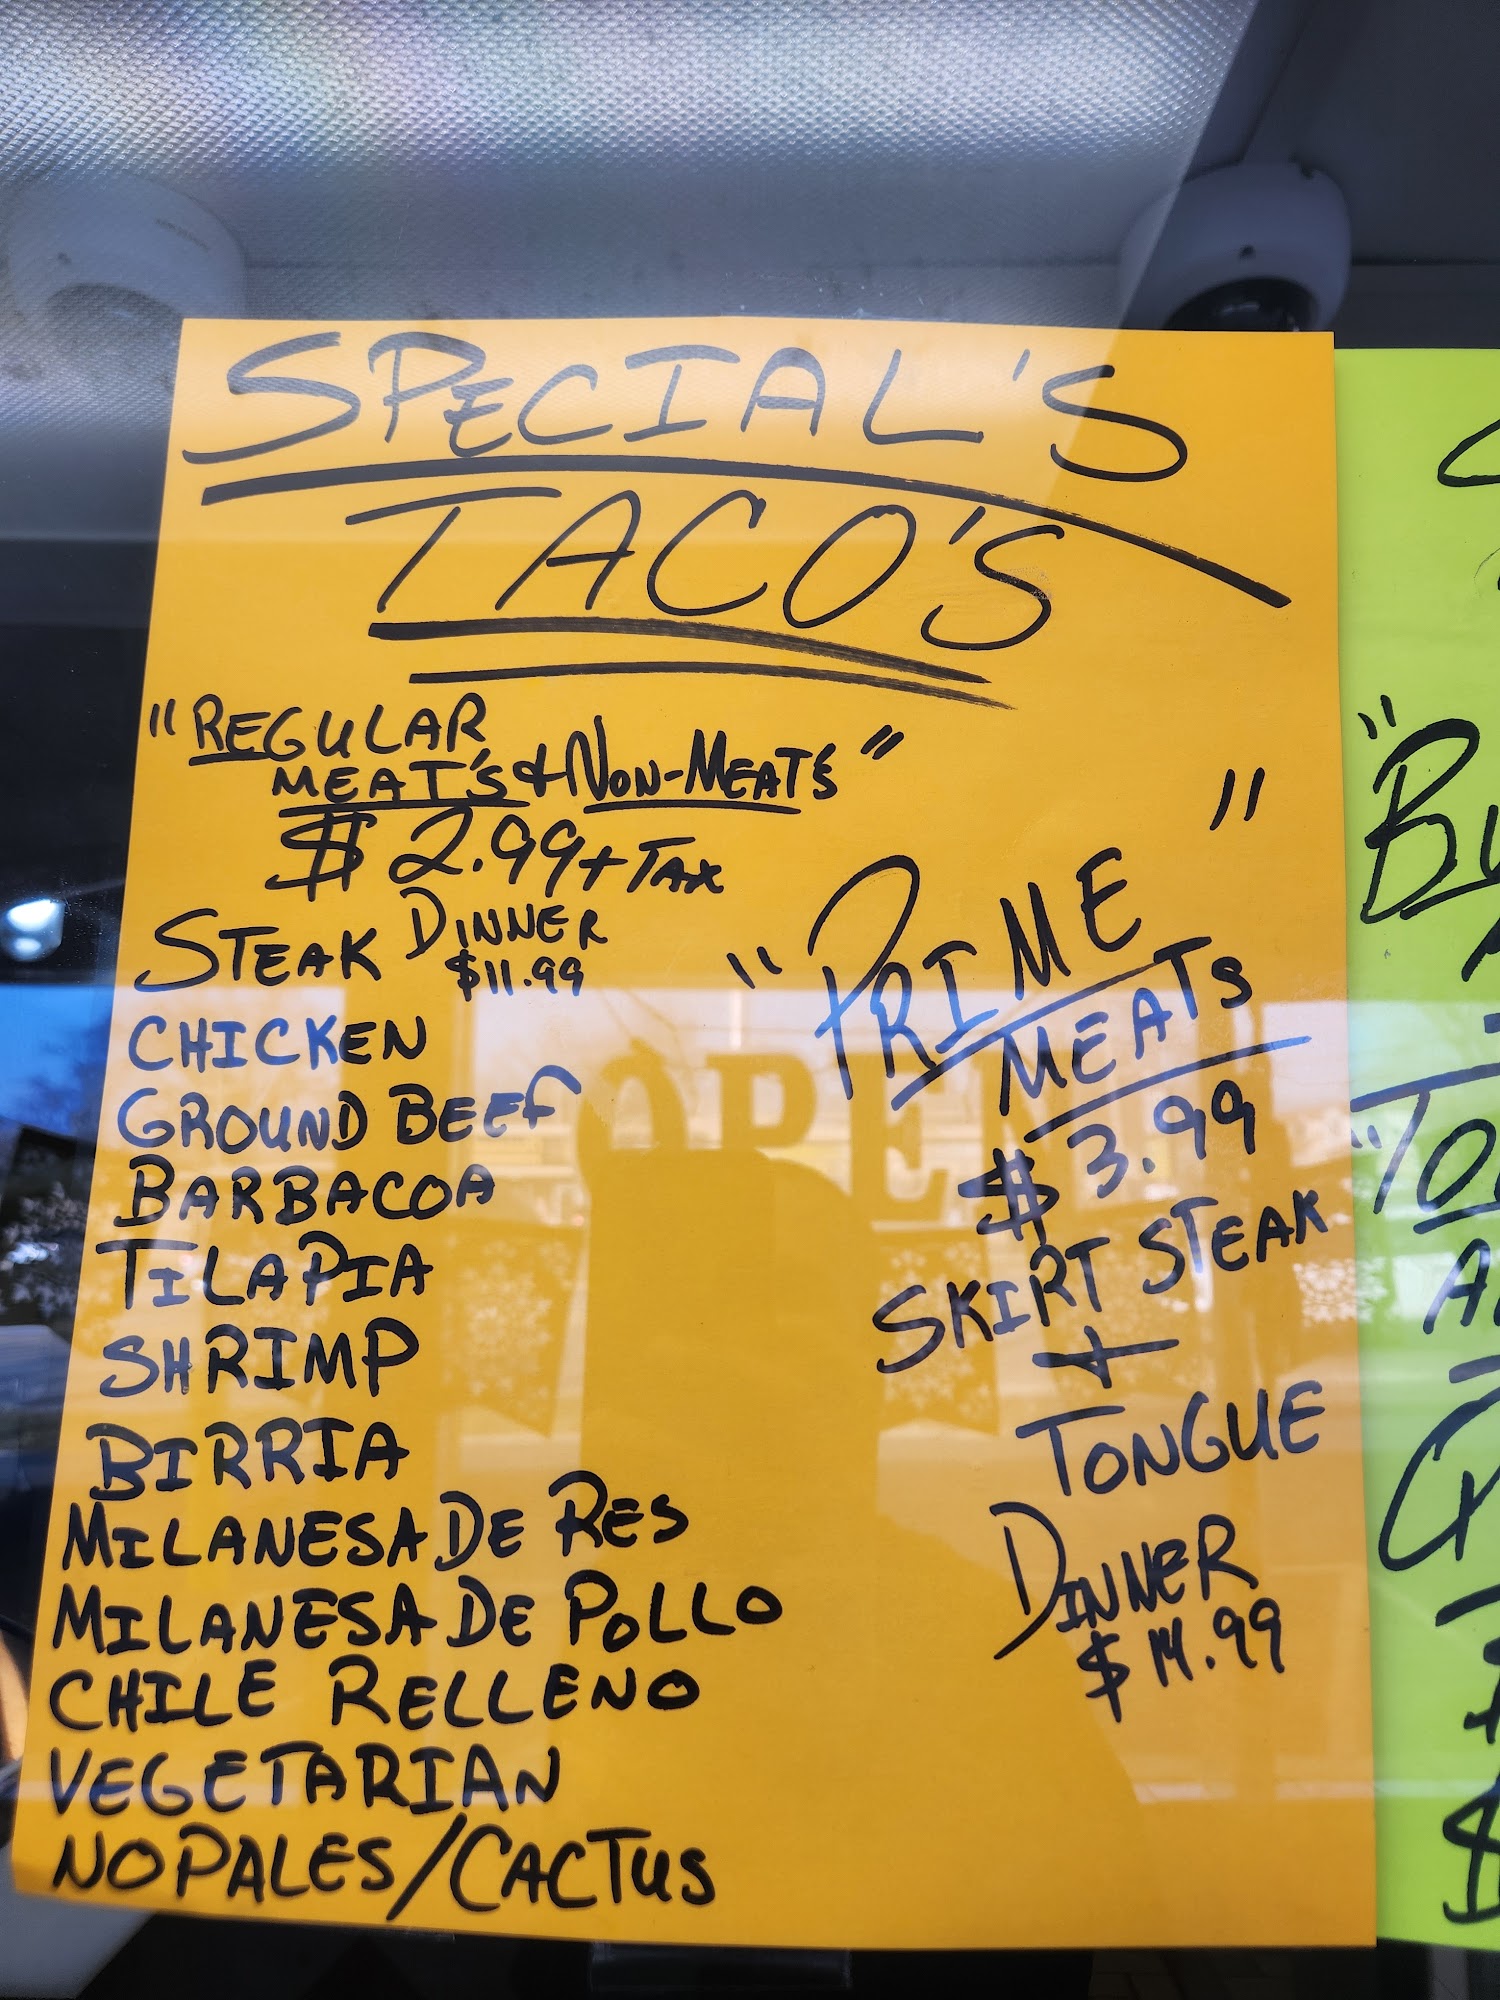 SPECIAL'S
TACO'S
"REGULAR
MEAT'S & NON-MEAT'S"
$2.99 + TAX
STEAK
DINNER
$11.99
CHICKEN
GROUND BEEF
BARBACOA
TILAPIA
SHRIMP
BIRRIA
MILANESA DE RES
MILANESA DE POLLO
CHILE RELLENO
VEGETARIAN
NOPALES/CACTUS
"PRIME"
MEATS
$3.99
SKIRT STEAK
+
TONGUE
DINNER
$14.99
OPEN